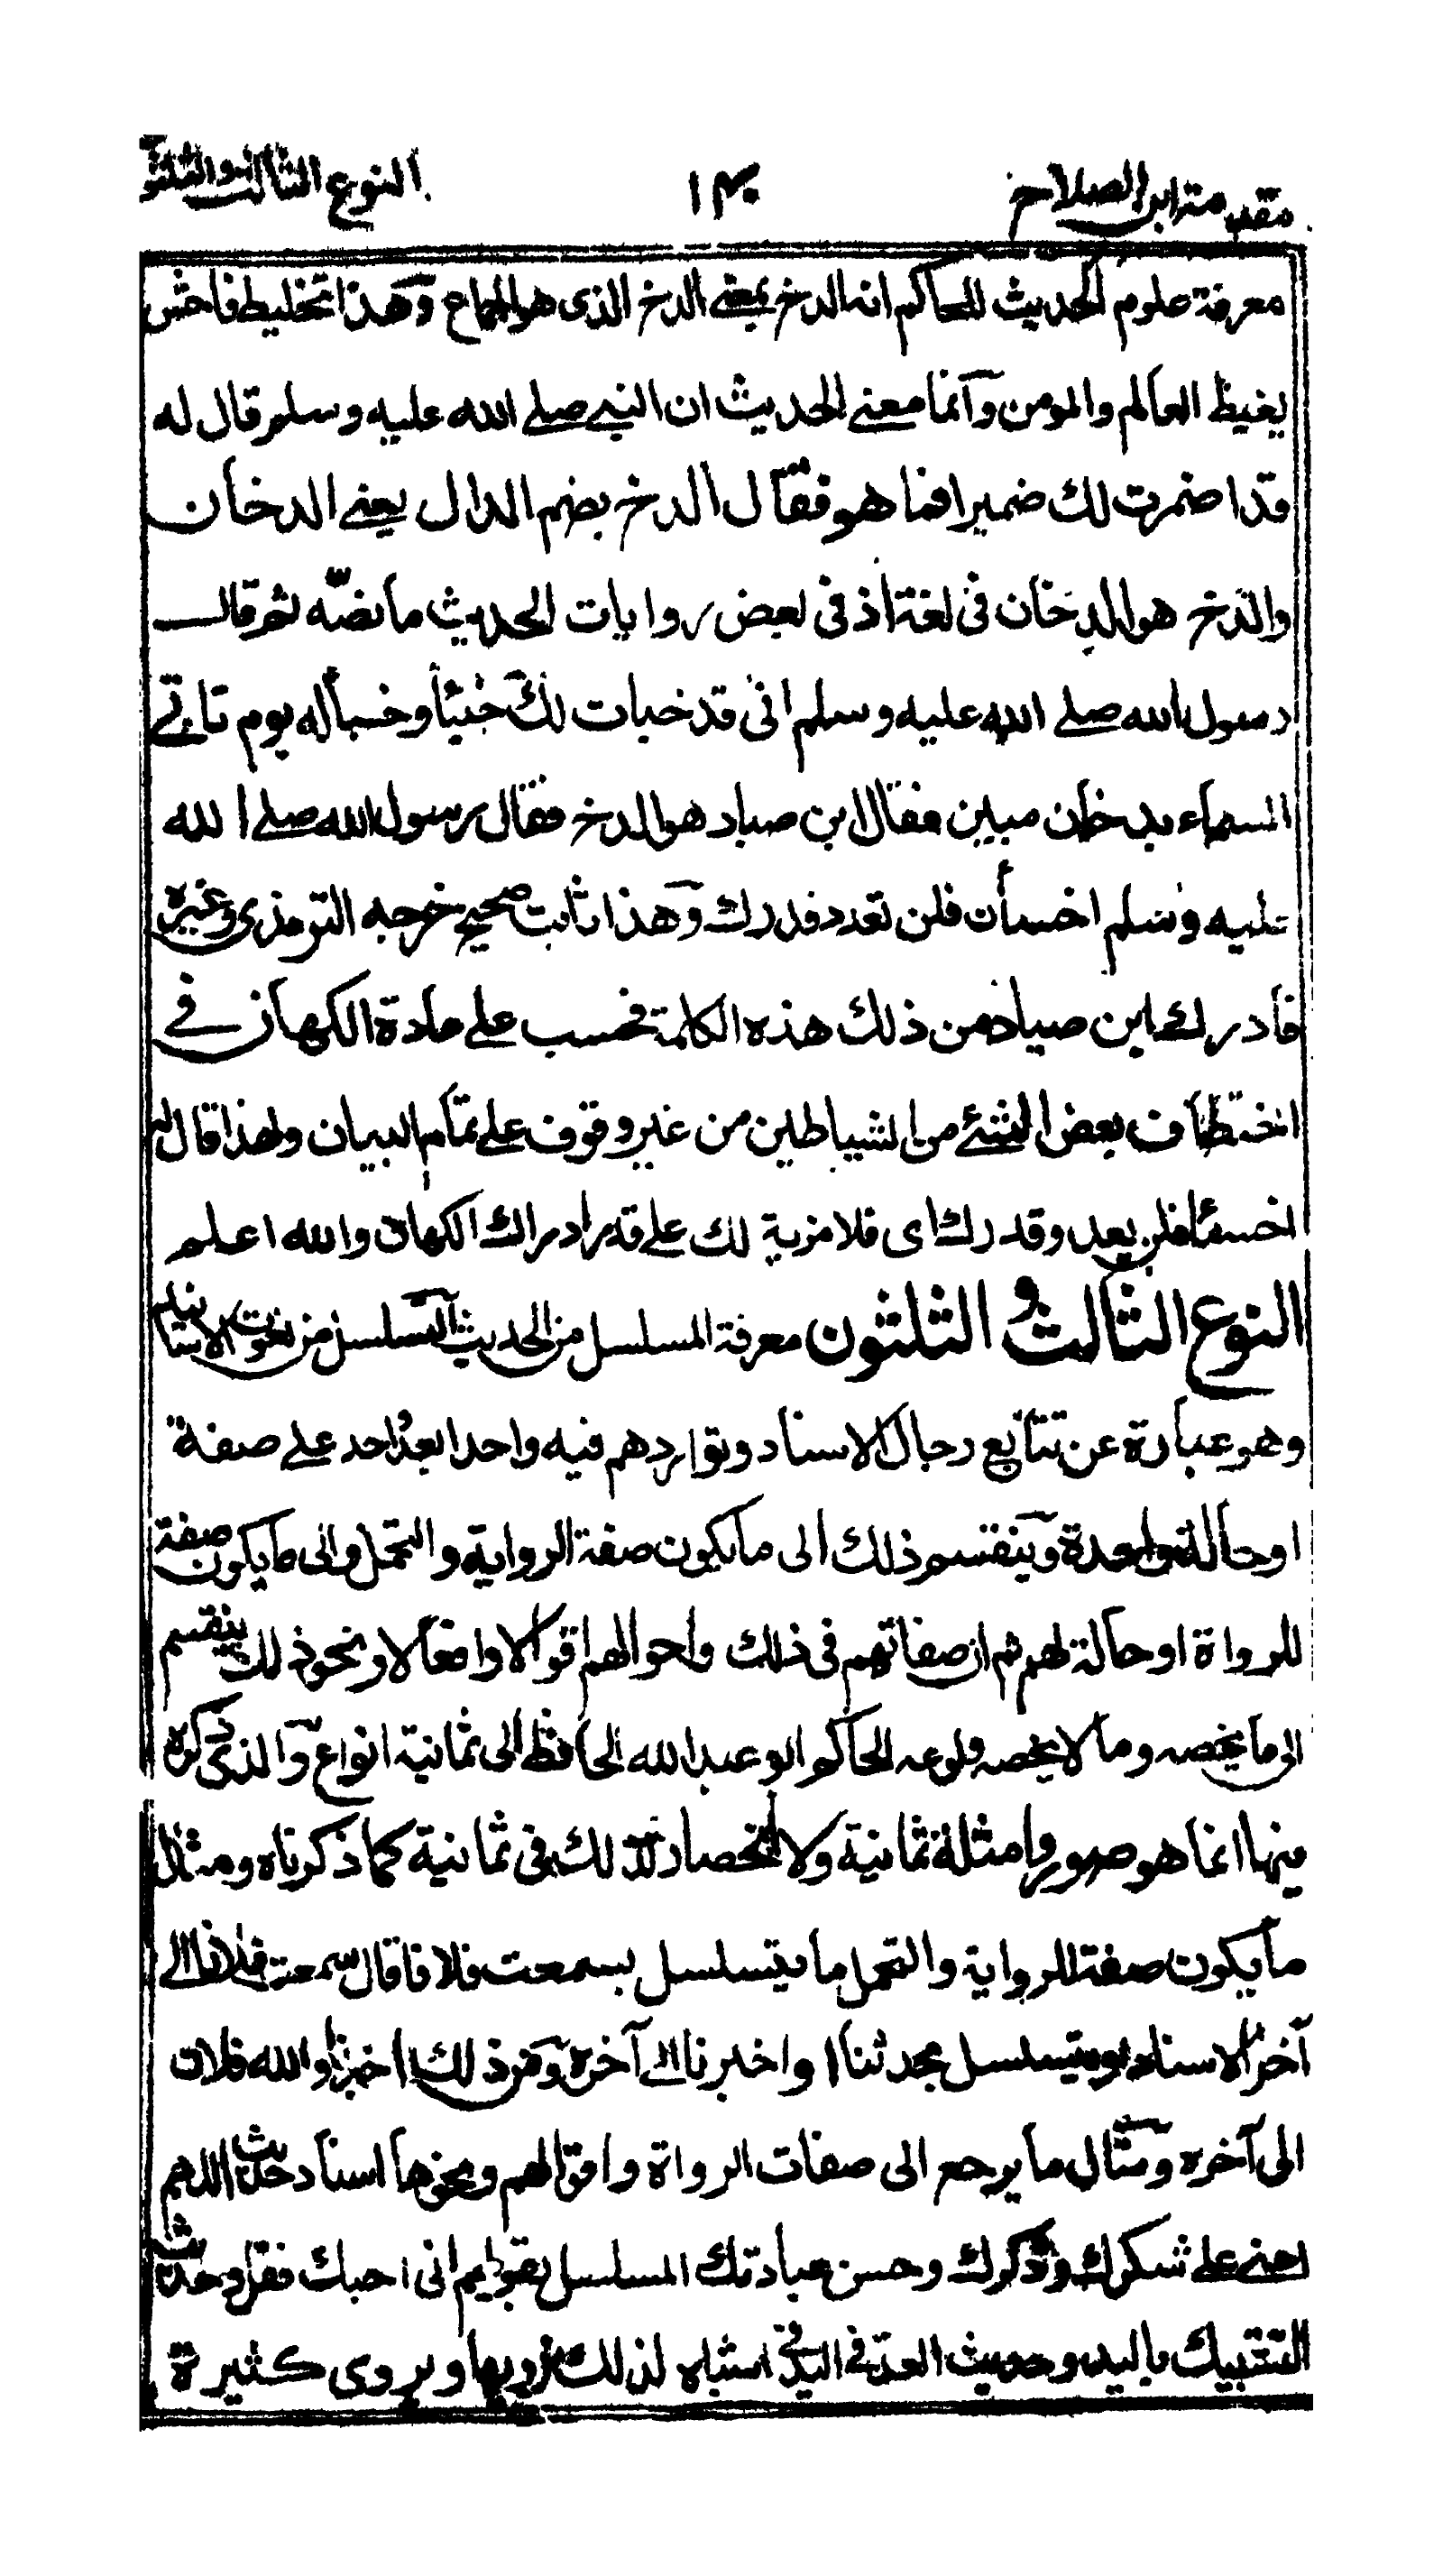 مقدمة ابن الصلاح ١٤٠ النوع الثالث والثلثون
معرفة علوم الحديث للحاكم انه الدخ بمعنے الدخ الذى هو الجماع وهذا تخليط فاحش
يغيظ العالم والمومن وانما معنے الحديث ان النبے صلے الله عليه وسلم قال له
قد اضمرت لك ضميرا فما هو فقال الدخ بضم الدال يعنے الدخان
والدخ هو الدخان فى لغة اذ فى بعض روايات الحديث ما نصّه ثم قال
رسول الله صلے الله عليه وسلم انى قد خبات لك خبيأ وخبأ له يوم تاتے
السماء بدخان مبين فقال ابن صياد هو الدخ فقال رسول الله صلے الله
عليه وسلم اخسأ فلن تعدو قدرك وهذا ثابت صحيح خرجه الترمذى وغيره
فادرك ابن صياد من ذلك هذه الكلمة فحسب علے عادة الكهان فے
اختطاف بعض الشئے من الشياطين من غير وقوف علے تمام البيان ولهذا قال له
اخسئا فلن يعد وقدرك اى فلا مزية لك علے قدر ادراك الكهان والله اعلم
النوع الثالث و الثلثون معرفة المسلسل من الحديث التسلسل من نعوت الاسانيد
وهو عبارة عن تتابع رجال الاسناد وتواردهم فيه واحدا بعد واحد علے صفة
او حالة واحدة وينقسم ذلك الى ما يكون صفة الرواية والتحمل والى ما يكون صفة
للرواة او حالة لهم ثم ان صفاتهم فى ذلك واحوالهم اقوالا وافعالا ونحو ذلك ينقسم
الى ما يخصه وما لا يخصه ونوعه الحاكم ابو عبد الله الحافظ الى ثمانية انواع والذى ذكره
منها انما هو صور وامثلة ثمانية ولا انحصار لذلك فى ثمانية كما ذكرناه ومثال
ما يكون صفة للرواية والتحمل ما يتسلسل بسمعت فلانا قال سمعت فلانا الى
آخر الاسناد او يتسلسل بحدثنا او اخبرنا الى آخره ومن ذلك اخبرنا والله فلان
الى آخره ومثال ما يرجع الى صفات الرواة واقوالهم ونحوها اسناد حديث اللهم
اعنے علے شكرك وذكرك وحسن عبادتك المسلسل بقولهم انى احبك فقل وحديث
التشبيك باليد وحديث العدّ فے اليد فے اشباه لذلك نرويها ويروى كثيرة